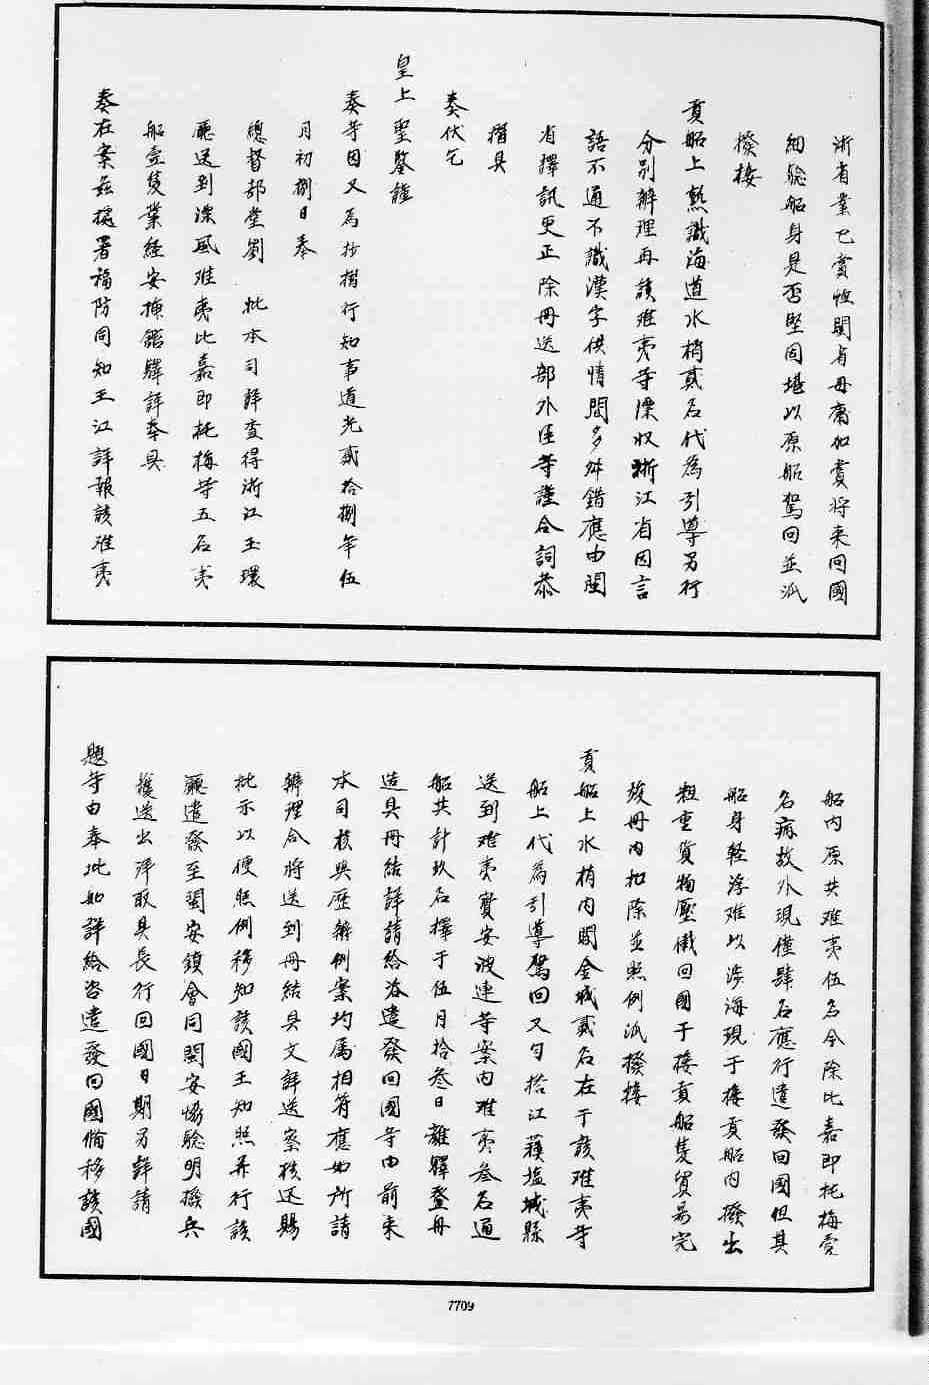 浙省業已賞恤閩省毋庸加賞將来回國
細驗船身是否堅固堪以原船駕回並派
撥接
貢船上熟識海道水梢貳名代為引導另行
分別辦理再該难夷等漂收浙江省因言
語不通不識漢字供情間多舛錯應由閩
省譯訊更正除冊送部外臣等謹合詞恭
摺具
奏伏乞
皇上聖鑒謹
奏等因又為抄摺行知事道光貳拾捌年伍
月初捌日奉
總督部堂劉 批本司詳查得浙江玉環
廳送到漂風难夷比嘉即扥梅等五名夷
船壹隻業經安揷舘驛詳奉具
奏在案茲據署福防同知王江詳報該难夷
船内原共难夷伍名今除比嘉即扥梅壹
名病故外現僅肆名應行遣發回國但其
船身輕浮难以涉海現于接貢船内撥出
粗重貨物壓儎回國于接貢船隻貿易完
竣冊内扣除並照例派撥接
貢船上水梢内間金城貳名在于該难夷等
船上代為引導駕回又勻搭江蘇塩城縣
送到难夷實安波連等案内难夷叁名通
船共計玖名擇于伍月拾叁日離驛登舟
造具冊結詳請給咨遣發回國等由前来
本司核與歷辦例案均属相符應如所請
辦理合將送到冊結具文詳送察核还賜
批示以便照例移知該國王知照并行該
廳遣發至閩安鎮會同閩安協驗明撥兵
護送出洋取具長行回國日期另詳請
題等由奉批如詳給咨遣發回國偹移該國
7709